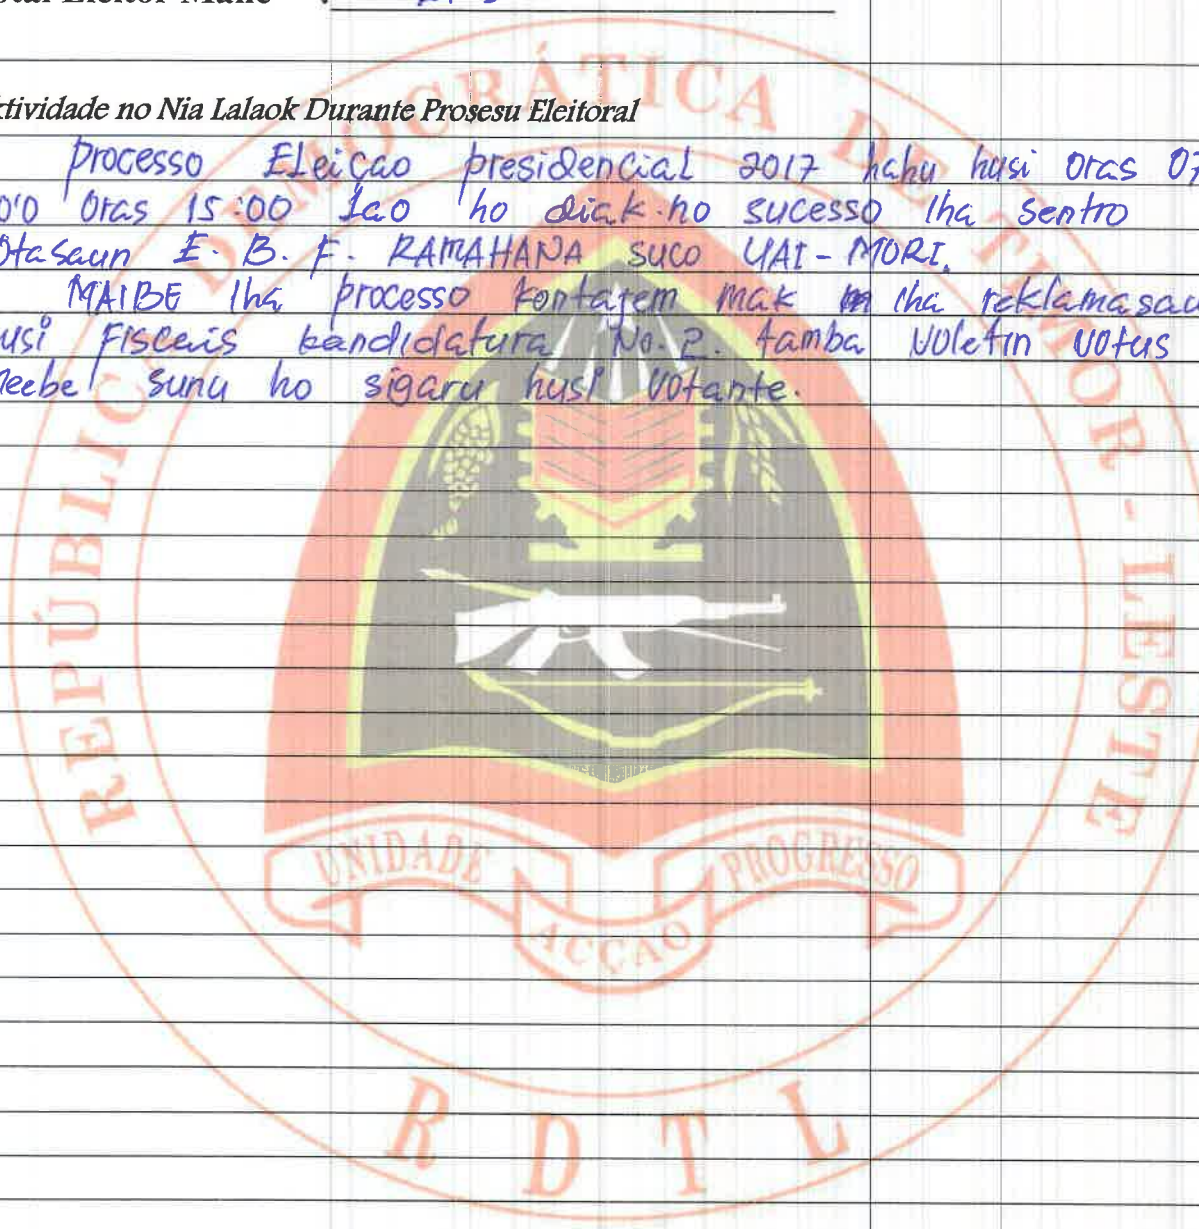 Eleitor Mane :
ktividade no Nia Lalaok Durante Prosesu Eleitoral
processo ELeiçao presidencial 2017 hahu husi oras 07
oras 15:00 Lao ho diak no sucesso Iha sentro
otasaun E. B. F. RAMAHANA suco UAI-MORI.
MAIBE Iha processo kontajem mak iha reklamasau
usi Fisceis kandidatura No. 2. tamba voletin votus
neebe sunu ho sigaru husi votante.
REPÚBLICA DEMOCRÁTICA DE TIMOR-LESTE
UNIDADE ACÇAO PROGRESSO
RDTL